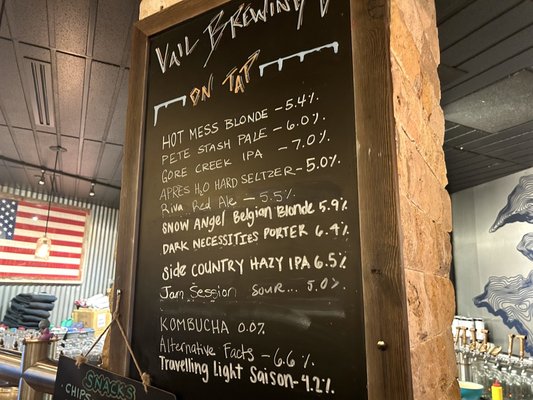 VAIL BREWING
ON TAP
HOT MESS BLONDE - 5.4%
PETE STASH PALE - 6.0%
GORE CREEK IPA - 7.0%
APRÈS H2O HARD SELTZER - 5.0%
Riva Red Ale - 5.5%
SNOW ANGEL Belgian Blonde 5.9%
DARK NECESSITIES PORTER 6.4%
Side COUNTRY HAZY IPA 6.5%
Jam Session SOUR... 5.0%
KOMBUCHA 0.0%
Alternative Facts - 6.6%
Travelling Light Saison - 4.2%
SNACKS
CHIPS